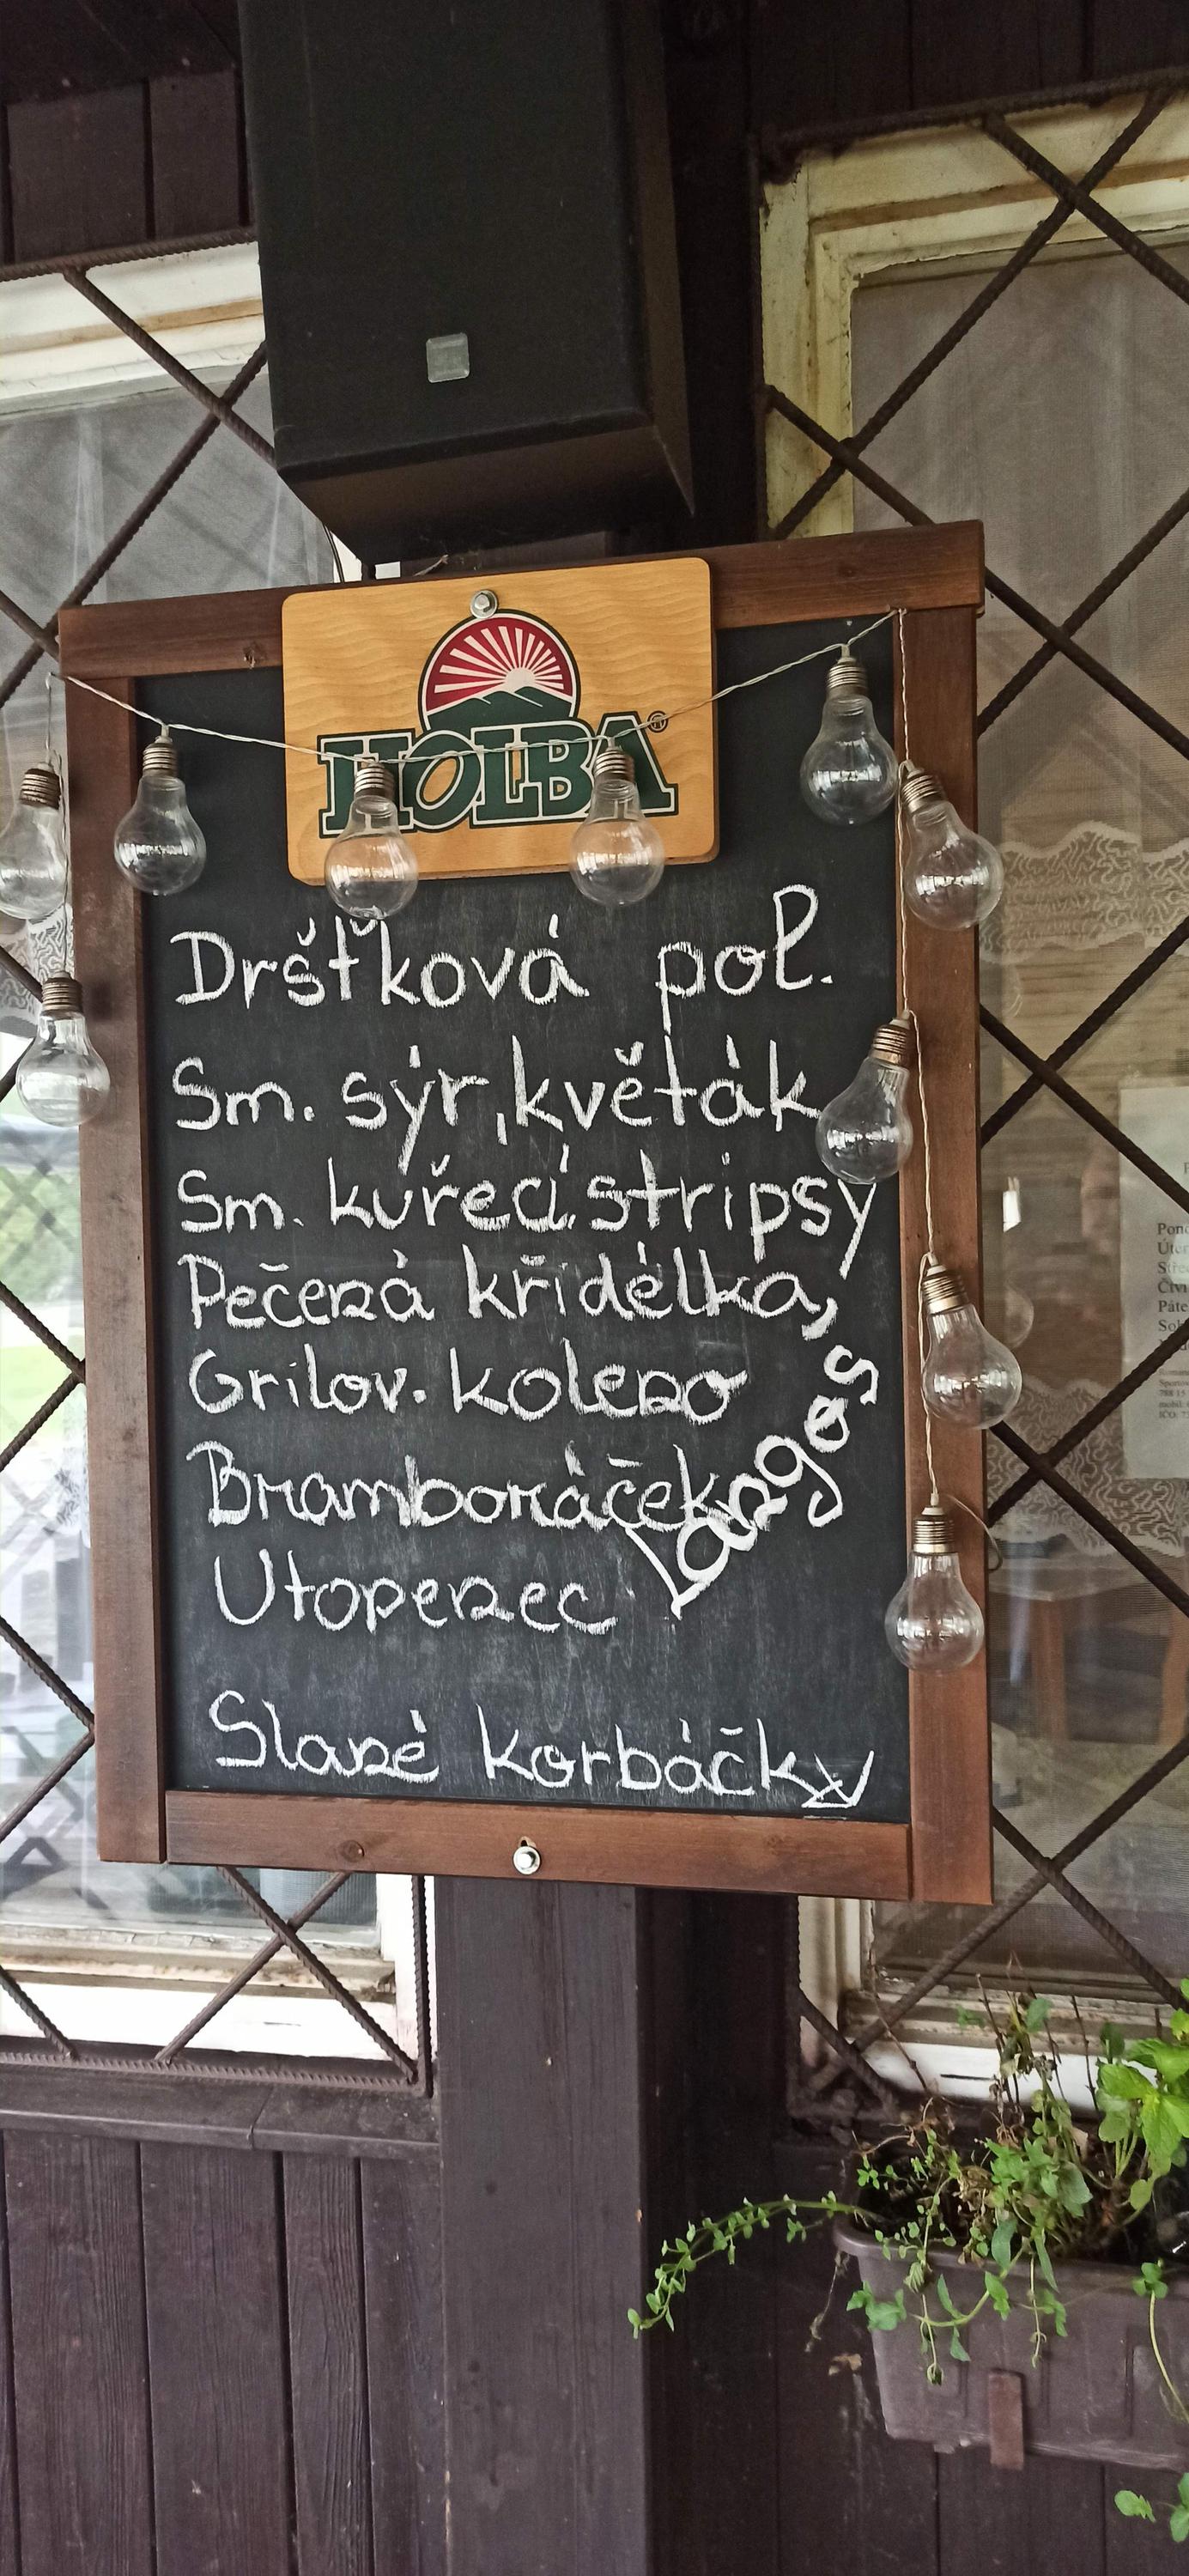 HOLBA®
Dršťková pol.
Sm. sýr, květák
Sm. kuřecí stripsy
Pečená křidélka,
Grilov. koleno
Bramboráček
Langos
Utopenec
Slané korbáčky
Páte